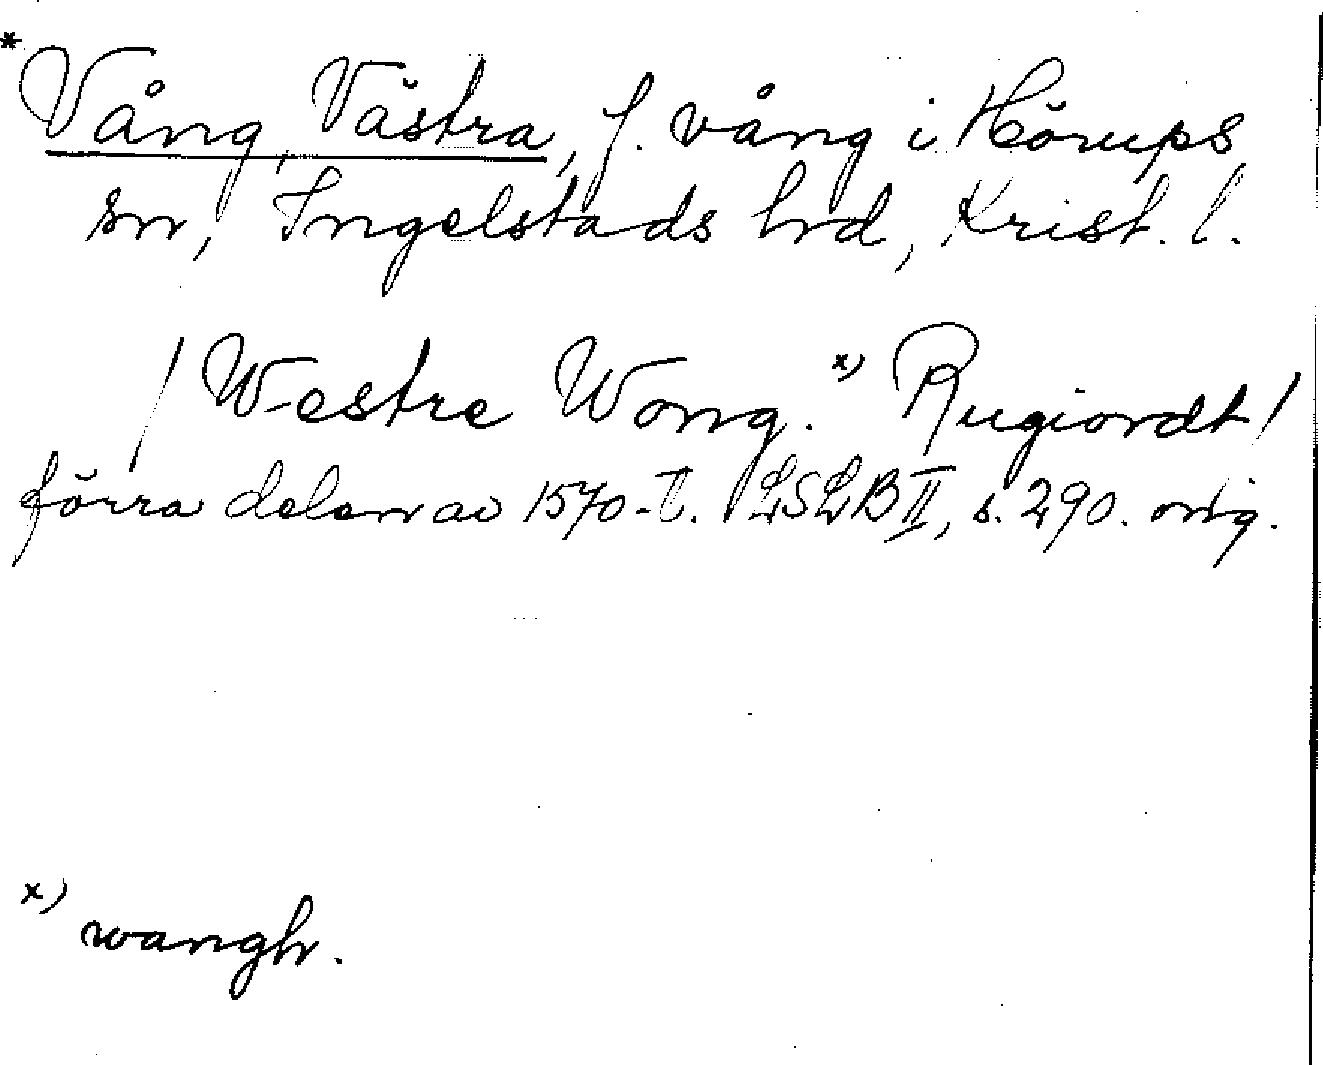 * Vång, Västra, f. vång i Hörups
sn, Ingelstads hrd, Krist. l.
/Westre Wong. x) Rugiordt/
förra delen av 1570-t. LSLB II, s. 290. orig.
x) wangh.